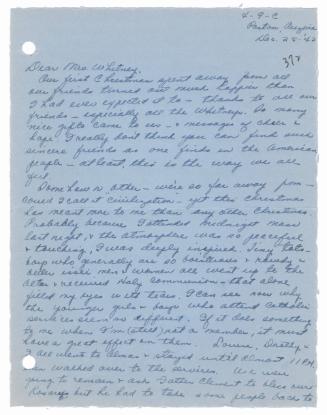 4-9-C
Poston, Arizona
Dec. 25 '42
Dear Mrs. Whitney,
Our first Christmas spent away from all
our friends turned out much happier than
I had ever expected it to – thanks to all our
friends – especially all the Whitneys. So many
nice gifts came to us – & messages of cheer &
hope. I really don't think you can find such
sincere friends as one finds in the American
people – at least, this is the way we all
feel.
Some how or other – we're so far away from –
could I call it civilization – yet this Christmas
has meant more to me than any other Christmas.
Probably because I attended midnight mass
last night & the atmosphere was so peaceful
& touching, I was deeply inspired. Tiny tots –
boys who generally are so boisterous & rowdy &
older issei men & women all went up to the
altar & received Holy Communion – that alone
filled my eyes with tears. I can see now why
the younger girls – boys who attend Catholic
services seem so different. If it does something
to me when I'm not a member, it must
have a great effect on them. Louise,
& I all went to & stayed until almost 11 P.M.
& walked over to the services. We were
going to remain & ask Father Clement to bless our
Rosary but he had to take some people back to